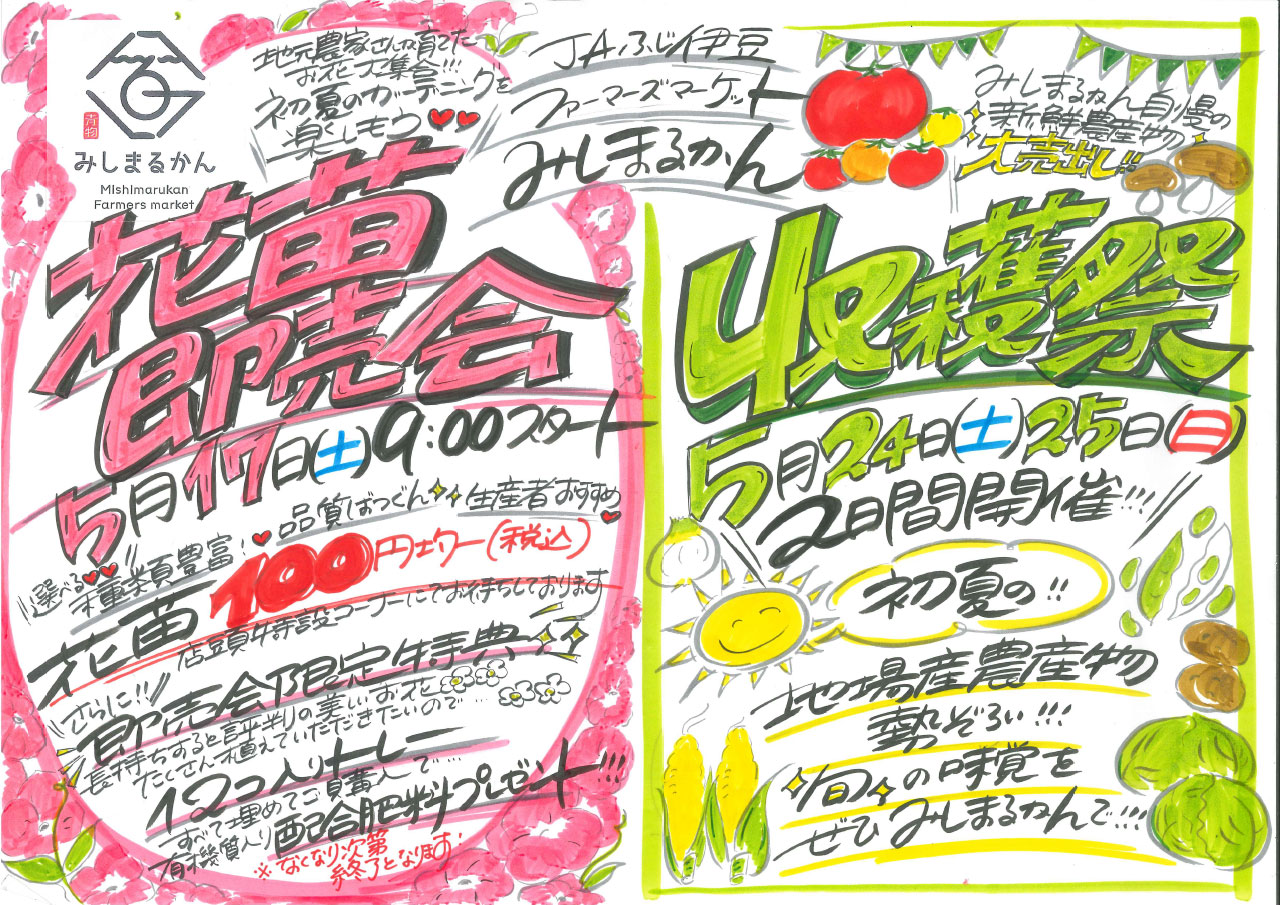 青物
みしまるかん
MIshImarukan
Farmers market
地元農家さんが育てた
お花大集合!!!
初夏のガーデニングを
楽しもう
花苗
即売会
5月17日(土)9:00スタート
品質ばつぐん 生産者おすすめ
選べる
種類豊富!
花苗100円均一(税込)
店頭特設コーナーにてお待ちしております
さらに!!
即売会限定特典
長持ちすると評判の美しいお花
たくさん植えていただきたいので…
12コ入りトレー
すべて埋めてご購入で…
有機質入り配合肥料プレゼント!!!
※なくなり次第
終了となります
JAふじ伊豆
ファーマーズマーケット
みしまるかん
みしまるかん自慢の
新鮮農産物
大売出し!!
収穫祭
5月24日(土)25日(日)
2日間開催!!!
初夏の!!
地場産農産物
勢ぞろい!!!
旬の味覚を
ぜひみしまるかんで!!!